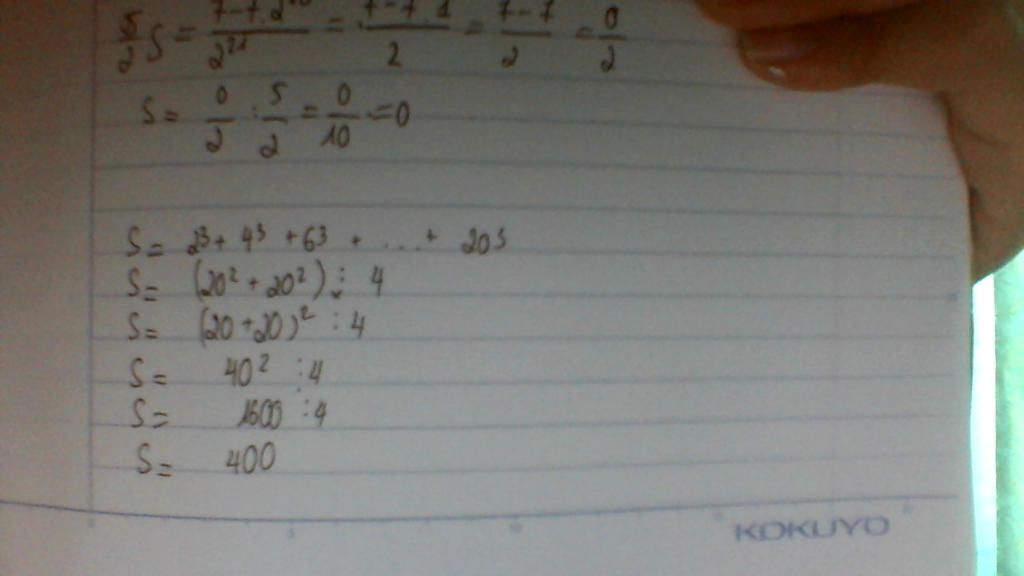 5/2 S = 7-7.2²⁰/2²¹ = 7-7.1/2 = 7-7/2 = 0/2
S = 0/2 : 5/2 = 0/10 = 0
S = 2³ + 4³ + 6³ + ... + 20³
S = (20² + 20²) : 4
S = (20 + 20)² : 4
S = 40² : 4
S = 1600 : 4
S = 400
KOKUYO